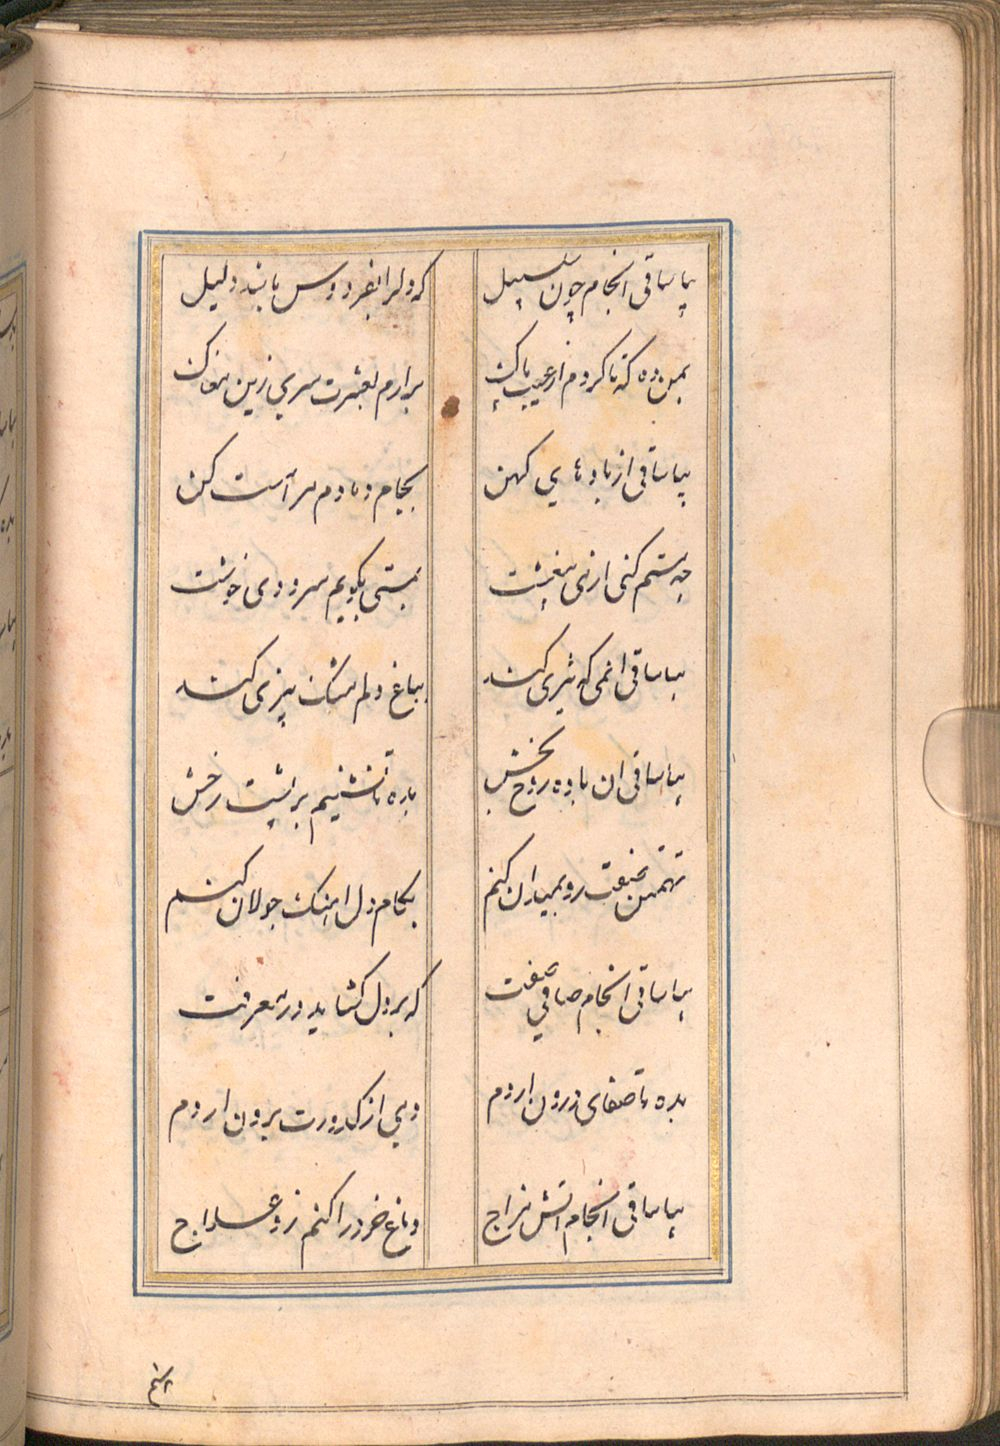 بیا ساقی انجام چون سلسبیل که دلرا بفردوس باشد دلیل
بمن ده که تا کردم از عیب پاک برارم بعشرت سری زین مغاک
بیا ساقی از بادهای کهن بجام دمادم مرا مست کن
چو مستم کنی از می بیغشت بمستی بگویم سرودی خوشت
بیا ساقی انمی که شیری کند بباغ دلم مشک بیزی کند
بیا ساقی ان باده روح بخش بده تا نشینم بر پشت رخش
تهمتن صفت رو بمیدان کنم بکام دل اهنک جولان کنم
بیا ساقی انجام صافی صفت که بر دل کشاید در معرفت
بده تا صفای درون اردم دمی از کدورت برون اردم
بیا ساقی انجام اتش مزاج دماغ خرد را کنم زو علاج